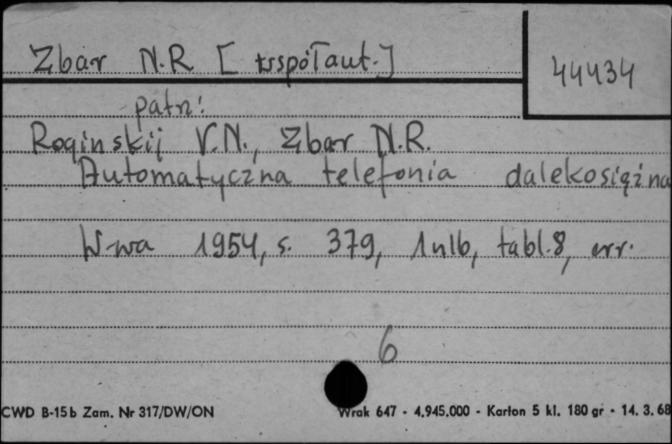 Zbar N.R [współaut.]
44434
patrz:
Roginskij V.N., Zbar N.R.
Automatyczna telefonia dalekosiężna
W-wa 1954, s. 379, 1 nlb, tabl. 8, err.
6
CWD B-15b Zam. Nr 317/DW/ON Wrak 647 - 4.945.000 - Karton 5 kl. 180 gr - 14. 3. 68